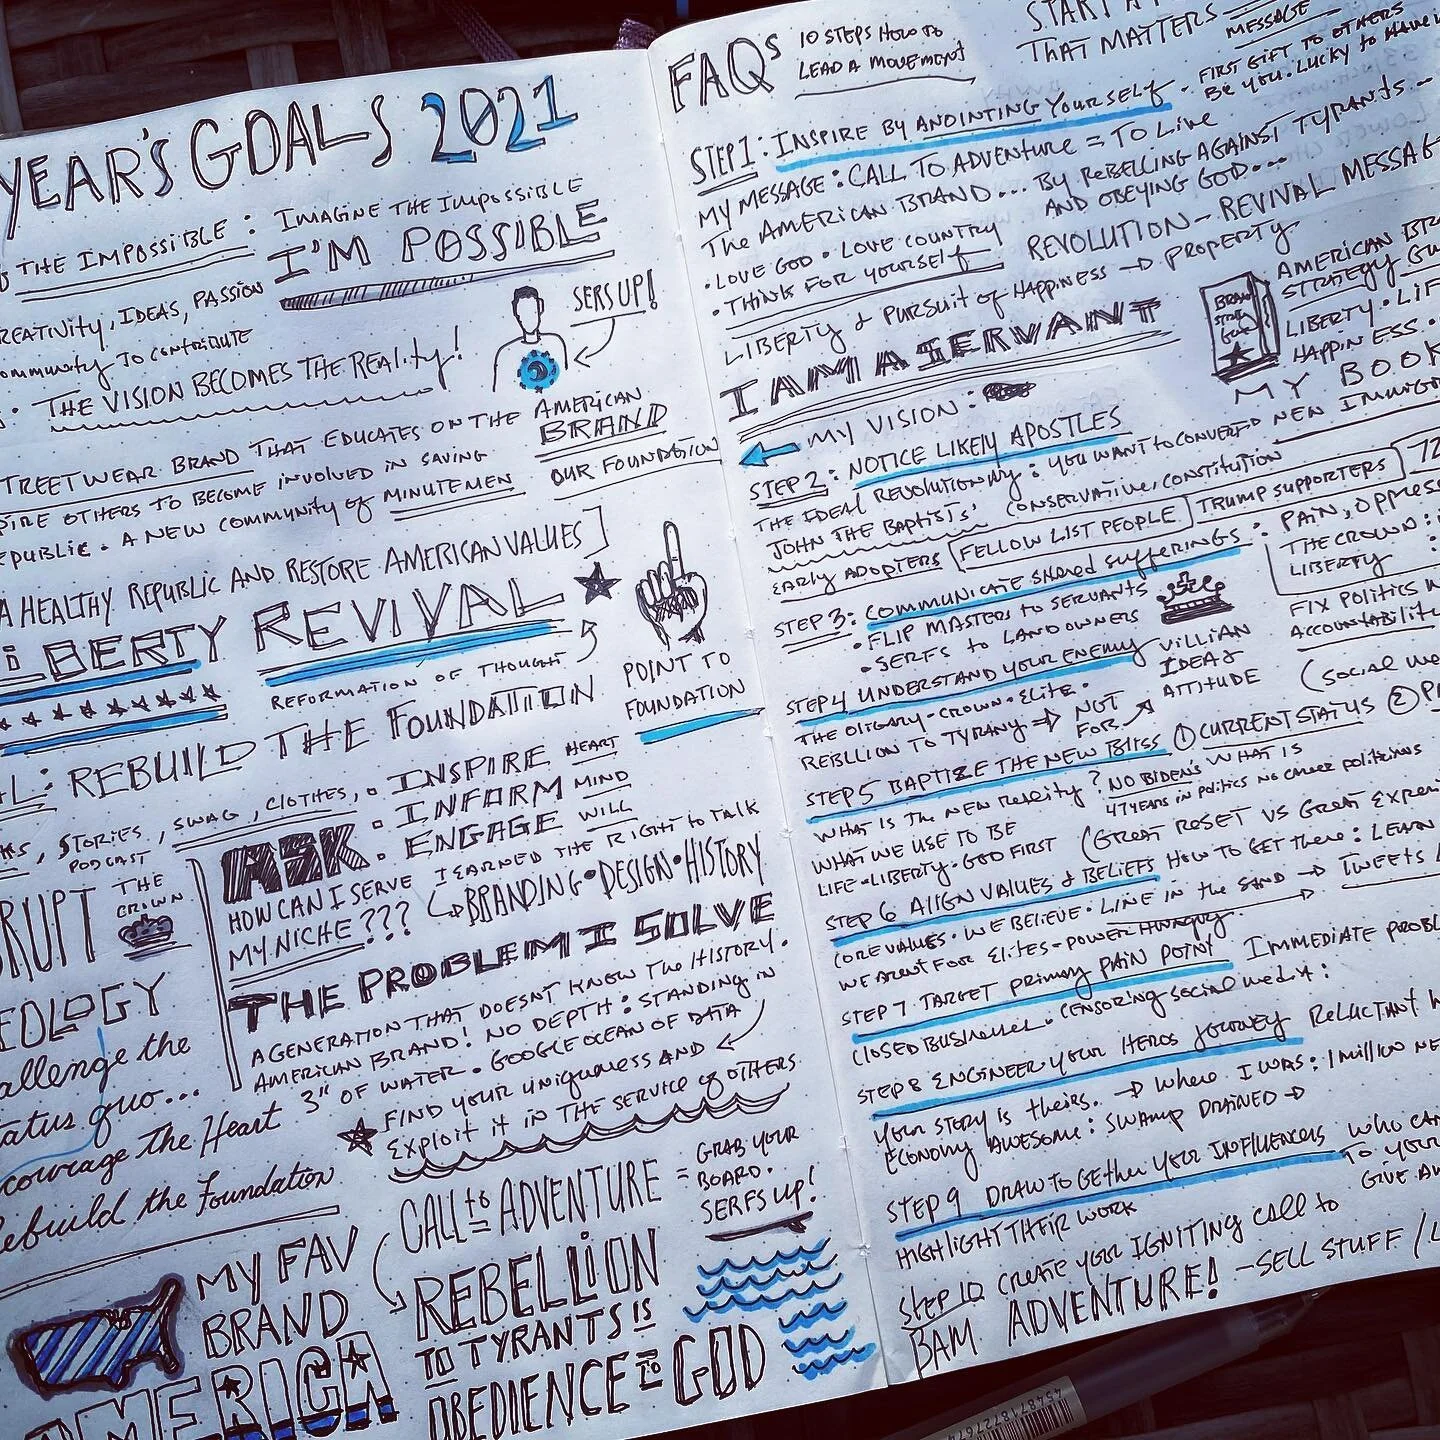 YEAR'S GOALS 2021
THE IMPOSSIBLE : IMAGINE THE IMPOSSIBLE
I'M POSSIBLE
CREATIVITY, IDEAS, PASSION
COMMUNITY TO CONTRIBUTE
THE VISION BECOMES THE REALITY!
SERFS UP!
STREETWEAR BRAND THAT EDUCATES ON THE AMERICAN BRAND
OTHERS TO BECOME INVOLVED IN SAVING
REPUBLIC. A NEW COMMUNITY OF MINUTEMEN
OUR FOUNDATION
A HEALTHY REPUBLIC AND RESTORE AMERICAN VALUES]
LIBERTY REVIVAL
REFORMATION OF THOUGHT
POINT TO
FOUNDATION
REBUILD THE FOUNDATION
STORIES, SWAG, CLOTHES,
PODCAST
• INSPIRE HEART
• INFORM MIND
• ENGAGE WILL
THE CROWN
ASK
HOW CAN I SERVE
MY NICHE???
I EARNED THE RIGHT TO TALK
BRANDING • DESIGN • HISTORY
THE PROBLEM I SOLVE
A GENERATION THAT DOESN'T KNOW THE HISTORY.
AMERICAN BRAND! NO DEPTH: STANDING IN
3" OF WATER. GOOGLE OCEAN OF DATA
FIND YOUR UNIQUENESS AND
EXPLOIT IT IN THE SERVICE OF OTHERS
challenge the
status quo...
the Heart
rebuild the foundation
MY FAV
BRAND
AMERICA
CALL TO ADVENTURE = GRAB YOUR
BOARD.
SERFS UP!
REBELLION
TO TYRANTS IS
OBEDIENCE TO GOD
FAQS
10 STEPS HOW TO
LEAD A MOVEMENT
START A
THAT MATTERS
MESSAGE
FIRST GIFT TO OTHERS
BE YOU. LUCKY TO HAVE
STEP 1: INSPIRE BY ANOINTING YOURSELF
MY MESSAGE: CALL TO ADVENTURE = TO LIVE
THE AMERICAN BRAND... BY REBELLING AGAINST TYRANTS
AND OBEYING GOD...
• LOVE GOD • LOVE COUNTRY
• THINK FOR YOURSELF
REVOLUTION - REVIVAL MESSAGE
LIBERTY & PURSUIT OF HAPPINESS → PROPERTY
I AM A SERVANT
AMERICAN BRAND
STRATEGY
LIBERTY • LIFE
HAPPINESS
MY BOOK
MY VISION:
STEP 2: NOTICE LIKELY APOSTLES
THE IDEAL REVOLUTIONARY: YOU WANT TO CONVERT NEW
JOHN THE BAPTISTS' CONSERVATIVE, CONSTITUTION
EARLY ADOPTERS FELLOW LIST PEOPLE TRUMP SUPPORTERS
STEP 3: COMMUNICATE SHARED SUFFERINGS: PAIN,
• FLIP MASTERS TO SERVANTS
• SERFS TO LANDOWNERS
THE CROWN:
LIBERTY:
STEP 4 UNDERSTAND YOUR ENEMY
VILLIAN
IDEAS
ATTITUDE
FIX POLITICS
ACCOUNTABILITY
THE OLIGARY - CROWN - ELITE.
REBLLION TO TYRANY → NOT
FOR
STEP 5 BAPTIZE THE NEW BLISS ① CURRENT STATUS ②
WHAT IS THE NEW REALITY? NO BIDEN'S WHAT IS
47 YEARS IN POLITICS NO CAREER POLITICIANS
WHAT WE USE TO BE
LIFE • LIBERTY • GOD FIRST (GREAT RESET VS GREAT
STEP 6 ALIGN VALUES & BELIEFS HOW TO GET THERE: LEARN
CORE VALUES. WE BELIEVE. LINE IN THE SAND → TWEETS
WE ARENT FOR ELITES - POWER HUNGRY.
STEP 7 TARGET PRIMARY PAIN POINT IMMEDIATE
CLOSED BUSINESSES. CENSORING SOCIAL MEDIA:
STEP 8 ENGINEER YOUR HEROS JOURNEY RELUCTANT
YOUR STORY IS THEIRS. → WHERE I WAS: 1 MILLION
ECONOMY AWESOME: SWAMP DRAINED →
STEP 9 DRAW TOGETHER YOUR INFLUENCERS WHO CAN
HIGHLIGHT THEIR WORK
TO YOUR
GIVE
STEP 10 CREATE YOUR IGNITING CALL TO
BAM ADVENTURE! - SELL STUFF /